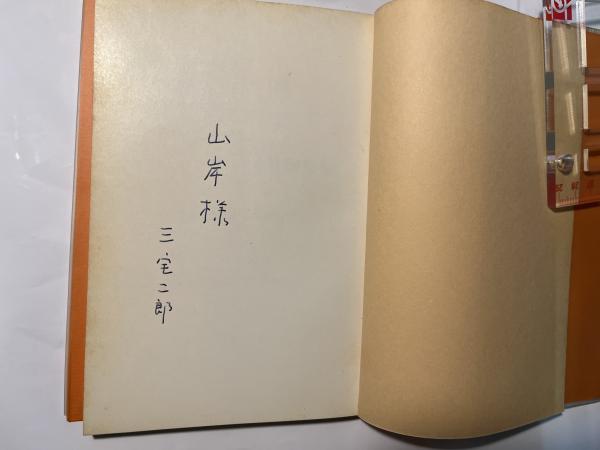 山岸様
三宅二郎